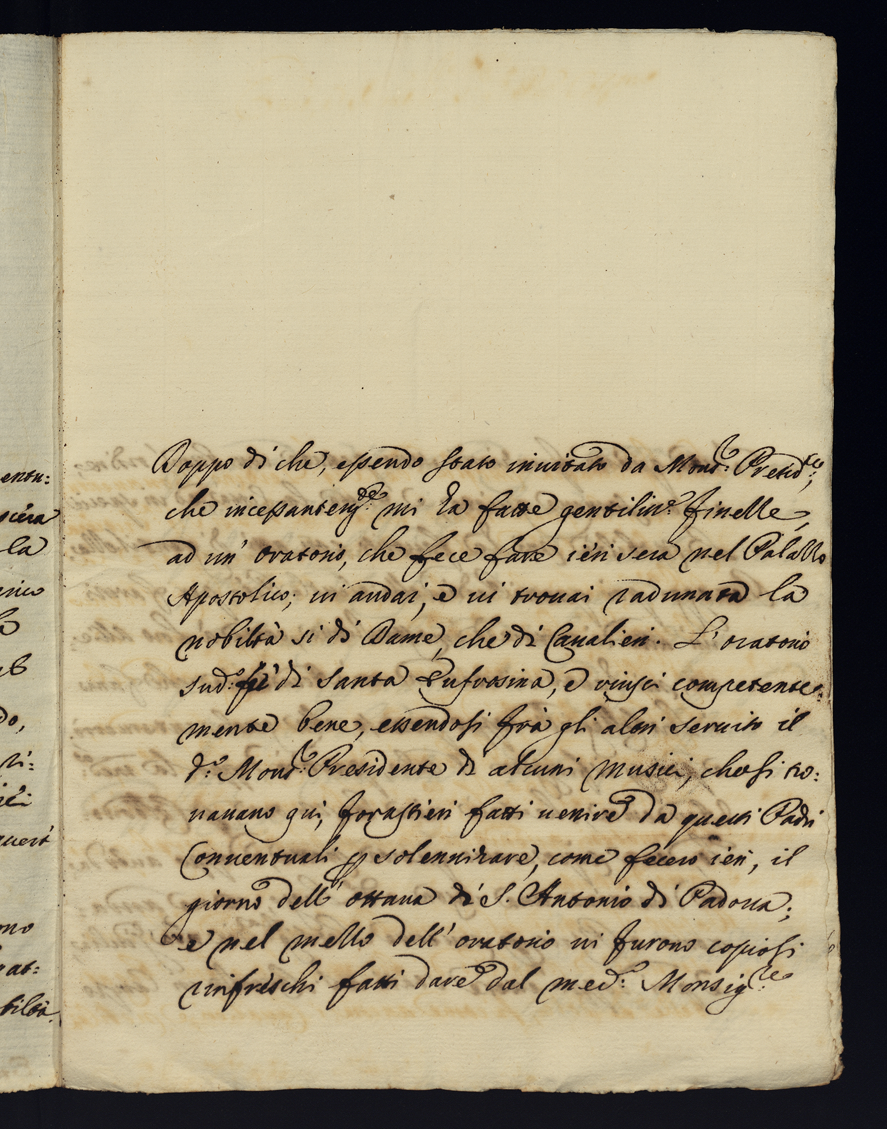 entu:
la
do,
ri:
no
at:
Doppo di che, essendo stato inuitato da Mons.r Presid.te,
che incessantem.te mi fa fatte gentiliss.e finelle,
ad un' oratorio, che fece fare ieri sera nel Palallo
Apostolico; ui andai, e ui trouai radunata la
nobiltà si di Dame, che di Caualieri. L'oratorio
sud.o fù di Santa Eufrosina, e riuscì competente:
mente bene, essendosi frà gli altri seruito il
d.o Mons.r Presidente di alcuni Musici, che si tro:
uauano qui, forastieri fatti uenire da questi Padri
Conuentuali p solennizare, come fecero ieri, il
giorno dell' ottaua di S. Antonio di Padoua;
e nel mello dell' oratorio ui furono copiosi
rinfreschi fatti dare dal med.o Monsig.re